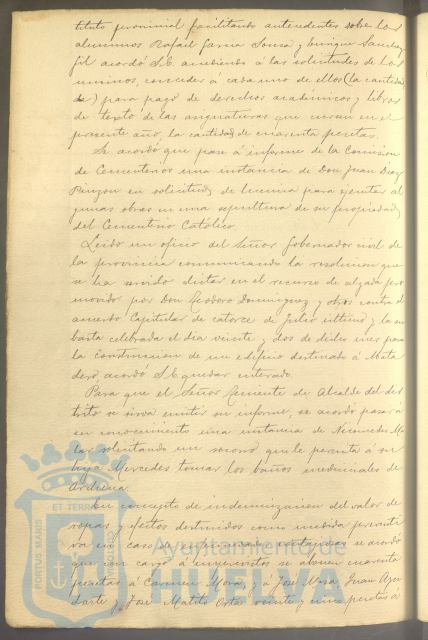 tituto provincial facilitando antecedentes sobre los
alumnos Rafael Garcia Sousa y Enrique Sanchez
Gil acordó S.E. accediendo a las solicitudes de los
mismos, conceder á cada uno de ellos (la cantidad
de) para pago de derechos académicos y libros
de texto de las asignaturas que cursan en el
presente año, la cantidad de cuarenta pesetas.
Se acordó que pase á informe de la Comision
de Cementerios una instancia de Don Juan Diaz
Pinzon en solicitud de licencia para ejecutar al
gunas obras en una sepultura de su propiedad
del Cementerio Católico.
Leido un oficio del Señor Gobernador civil de
la provincia comunicando la resolucion que
se ha servido dictar en el recurso de alzada pro
movido por Don Teodoro Dominguez y otros contra el
acuerdo Capitular de catorce de Julio último y la su
basta celebrada el dia veinte y dos de dicho mes para
la construccion de un edificio destinado á Mata
dero acordó S.E. quedar enterado.
Para que el Señor Teniente de Alcalde del dis
trito se sirva emitir su informe, se acordó pasar á
su conocimiento una instancia de
solicitando un socorro que le permita á su
hija Mercedes tomar los baños medicinales de
En concepto de indemnizacion del valor de
ropas y efectos destruidos como medida preventi
va en caso de enfermedades contagiosas se acordó
que con cargo á imprevistos se abonen cuarenta
pesetas á Carmen Mora, y á José Vara, Juan
y José Matito Orta veinte y cinco pesetas á
PORTUS MARIS
ET TERRAE
Ayuntamiento de
HUELVA